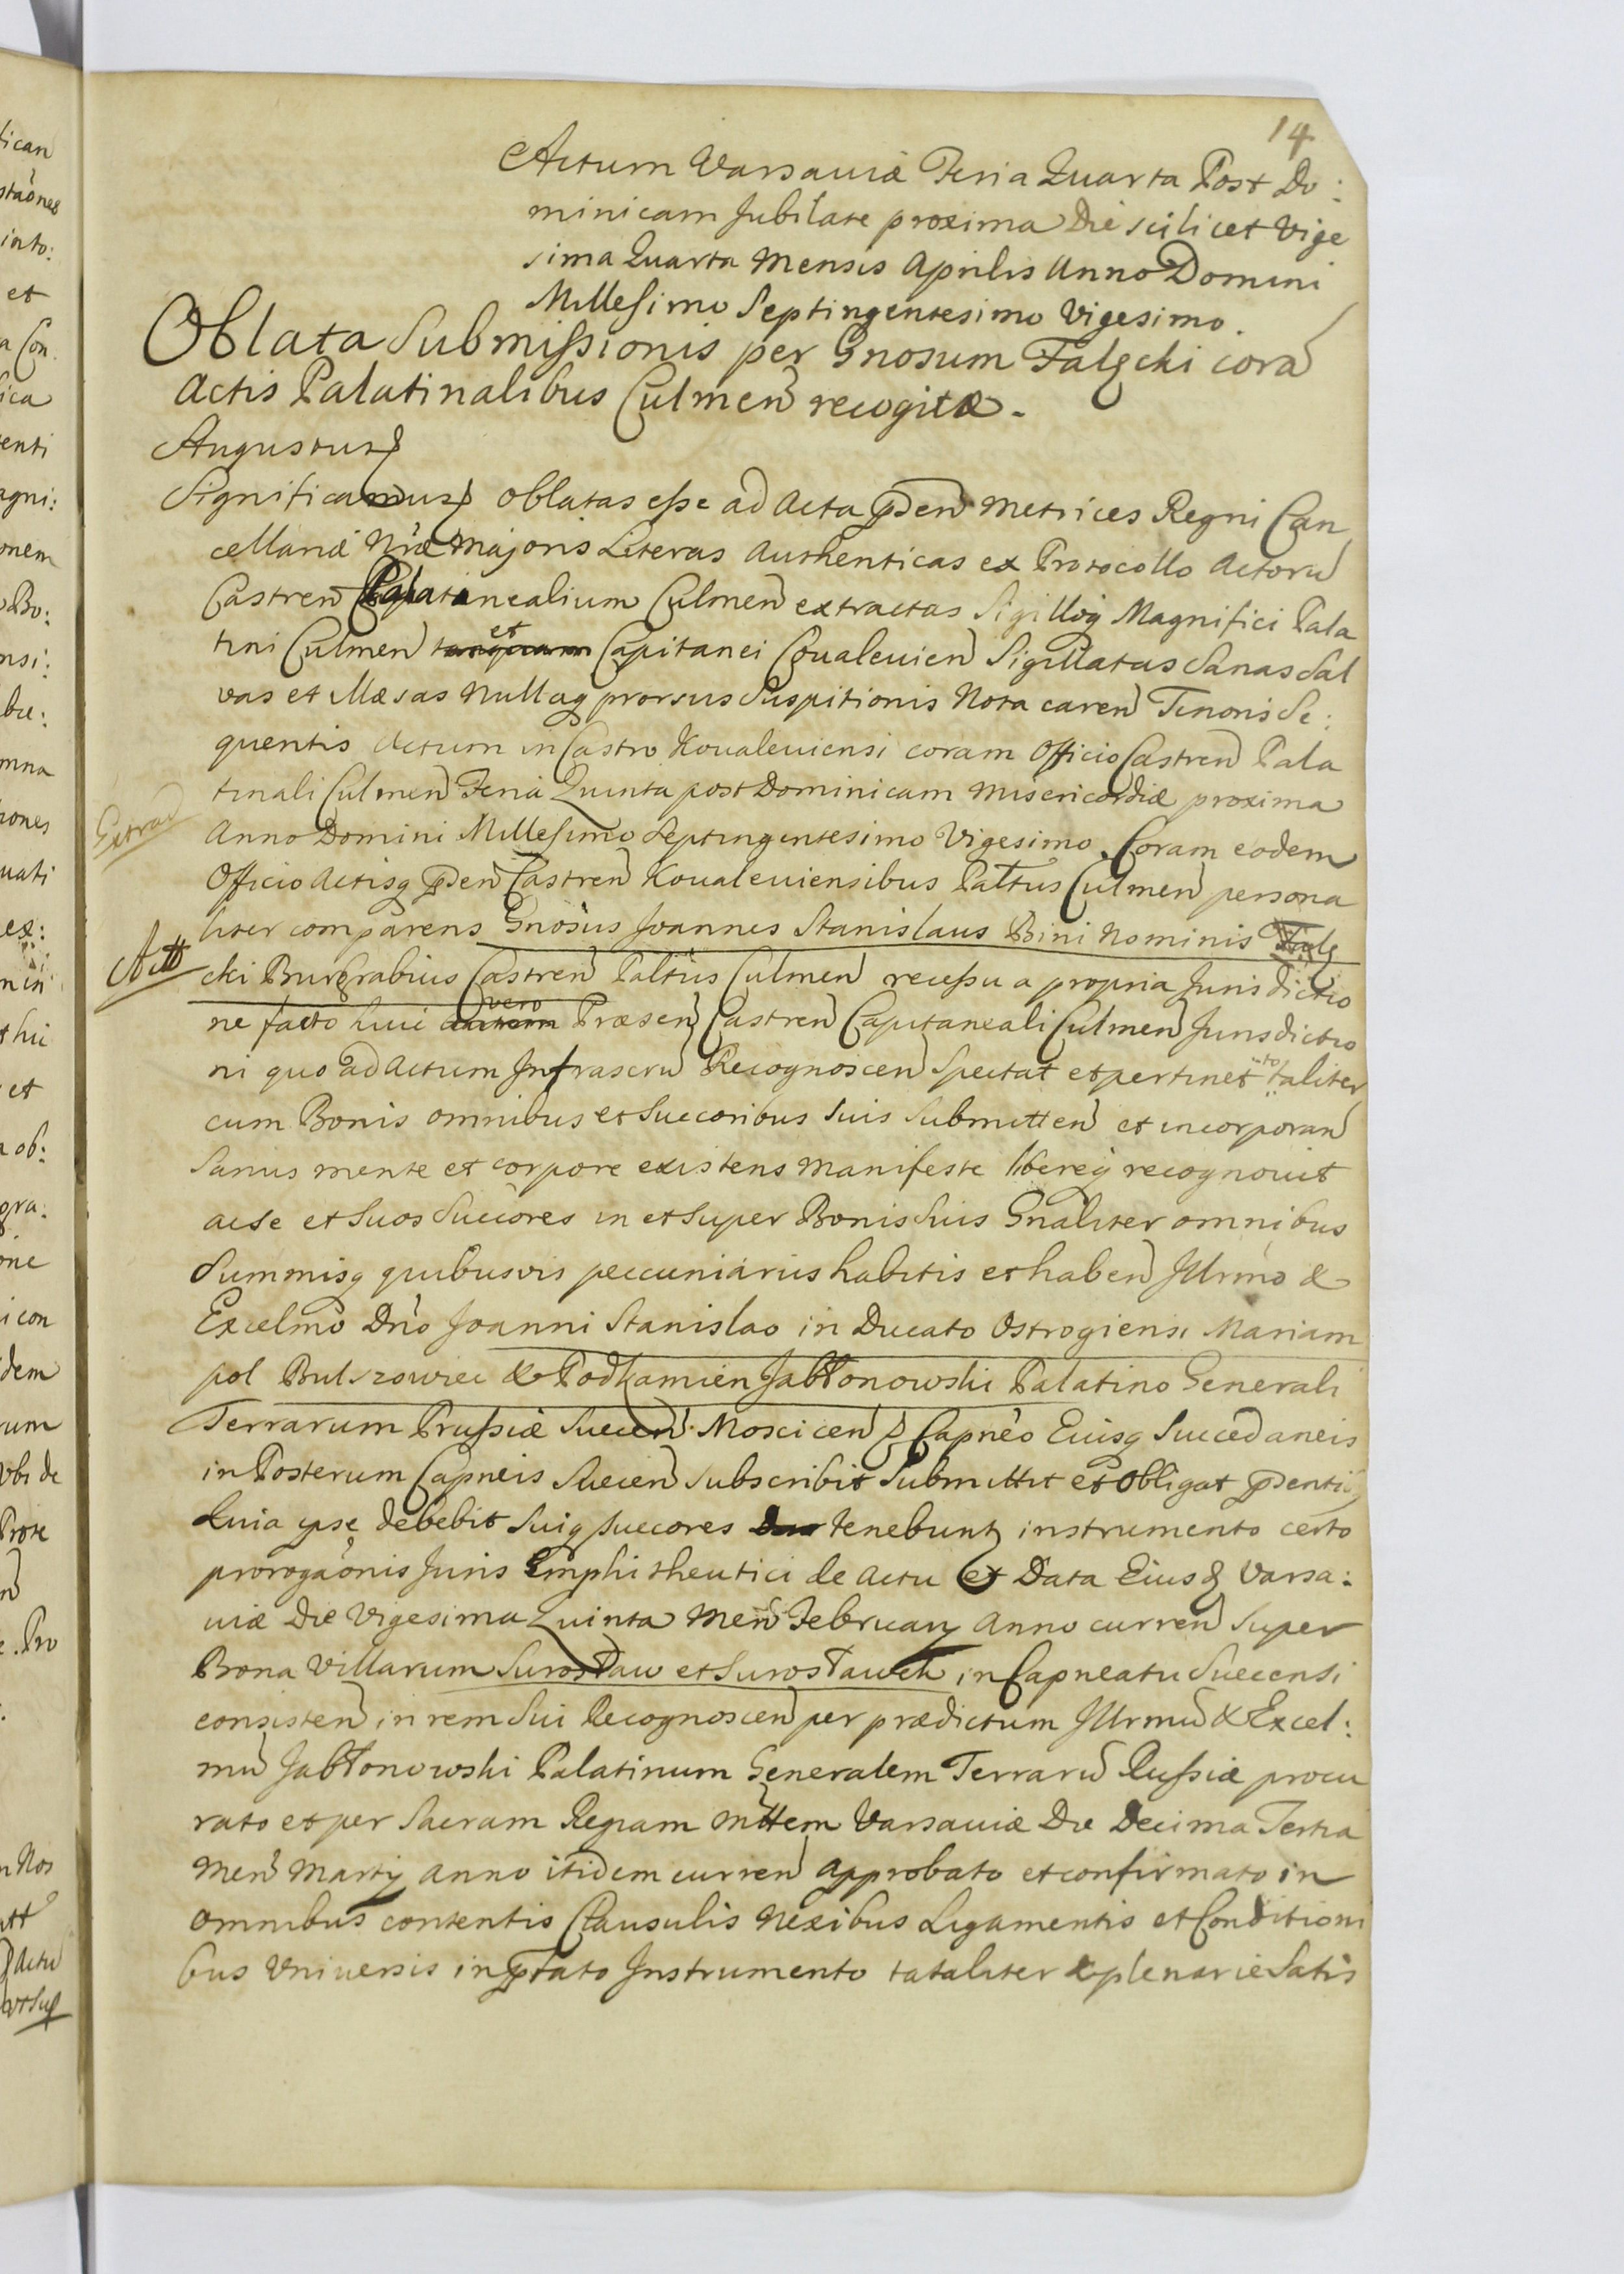 14
Actum Varsaviæ Feria Quarta Post Do:
minicam Jubilate proxima Die scilicet Vige
sima Quarta Mensis Aprilis Anno Domini
Millesimo Septingentesimo Vigesimo.
Oblata Submissionis per Gnosum Falęcki corã
Actis Palatinalibus Culmen recogitæ.
Augustus
Significamus oblatas esse ad Acta pñden Metrices Regni Can
cellariæ Nræ Majoris Literas Authenticas ex Protocollo Actorũ
Castren Palatinealium Culmen extractas Sigilloq Magnifici Pala
tini Culmen et Capitanei Covalevien Sigillatas Sanas Sal
vas et illæsas Nullaq prorsus Suspitionis Nota caren Tenoris Se:
quentis Actum in Castro Kovaleviensi coram Officio Castren Pala
tinali Culmen Feria Quinta post Dominicam Misericordiæ proxima
Extrad
Anno Domini Millesimo Septingentesimo Vigesimo. Coram eodem
Officio Actisq pñden Castren Kovaleviensibus Palttus Culmen persona
liter comparens Gnosus Joannes Stanislaus Bini Nominis Falę
Att
cki Burgrabius Castren Palttus Culmen recessu a propria Jurisdictio
ne facto huic vero Præsen Castren Capitaneali Culmen Jurisdictio
ni quo ad Actum Infrascrũ Recognoscen Spectat et pertinet totaliter
cum Bonis omnibus et Succoribus Suis Submitten et incorporan
Sanus mente et corpore existens manifeste libereq recognovit
ac se et Suos Succores in et Super Bonis Suis Gnaliter omnibus
Summisq quibusvis pecuniariis habitis et haben Jllrmo &
Excelmo Dño Joanni Stanislao in Ducato Ostrogiensi Mariam
pol Bulszowiec & Podkamien Jabłonowski Palatino Generali
Terrarum Prussiæ Suecen Moscicen Capneo Eiusq Succedaneis
in Posterum Capneis Suecen subscribit Submittit et Obligat pñdenti
Quia ipse debebit Suiq Succores tenebunt instrumento certo
prorogaonis Juris Emphitheutici de Actu et Data Eiusd Varsa:
viæ Die Vigesima Quinta Men Februarij Anno curren Super
Bona Villarum Surosław et Surosławek in Capneatu Suecensi
consisten in rem Sui Recognoscen per prædictum Jllrmũ & Excel:
mũ Jabłonowski Palatinum Generalem Terrarũ Russiæ procu
rato et per Sacram Regiam Mttem Varsaviæ Die Decima Tertia
Men Martij Anno itidem curren Approbato et confirmato in
omnibus contentis Clausulis Nexibus Ligamentis et Condition
bus Universis in pñtato Instrumento tataliter & plenarie Satis